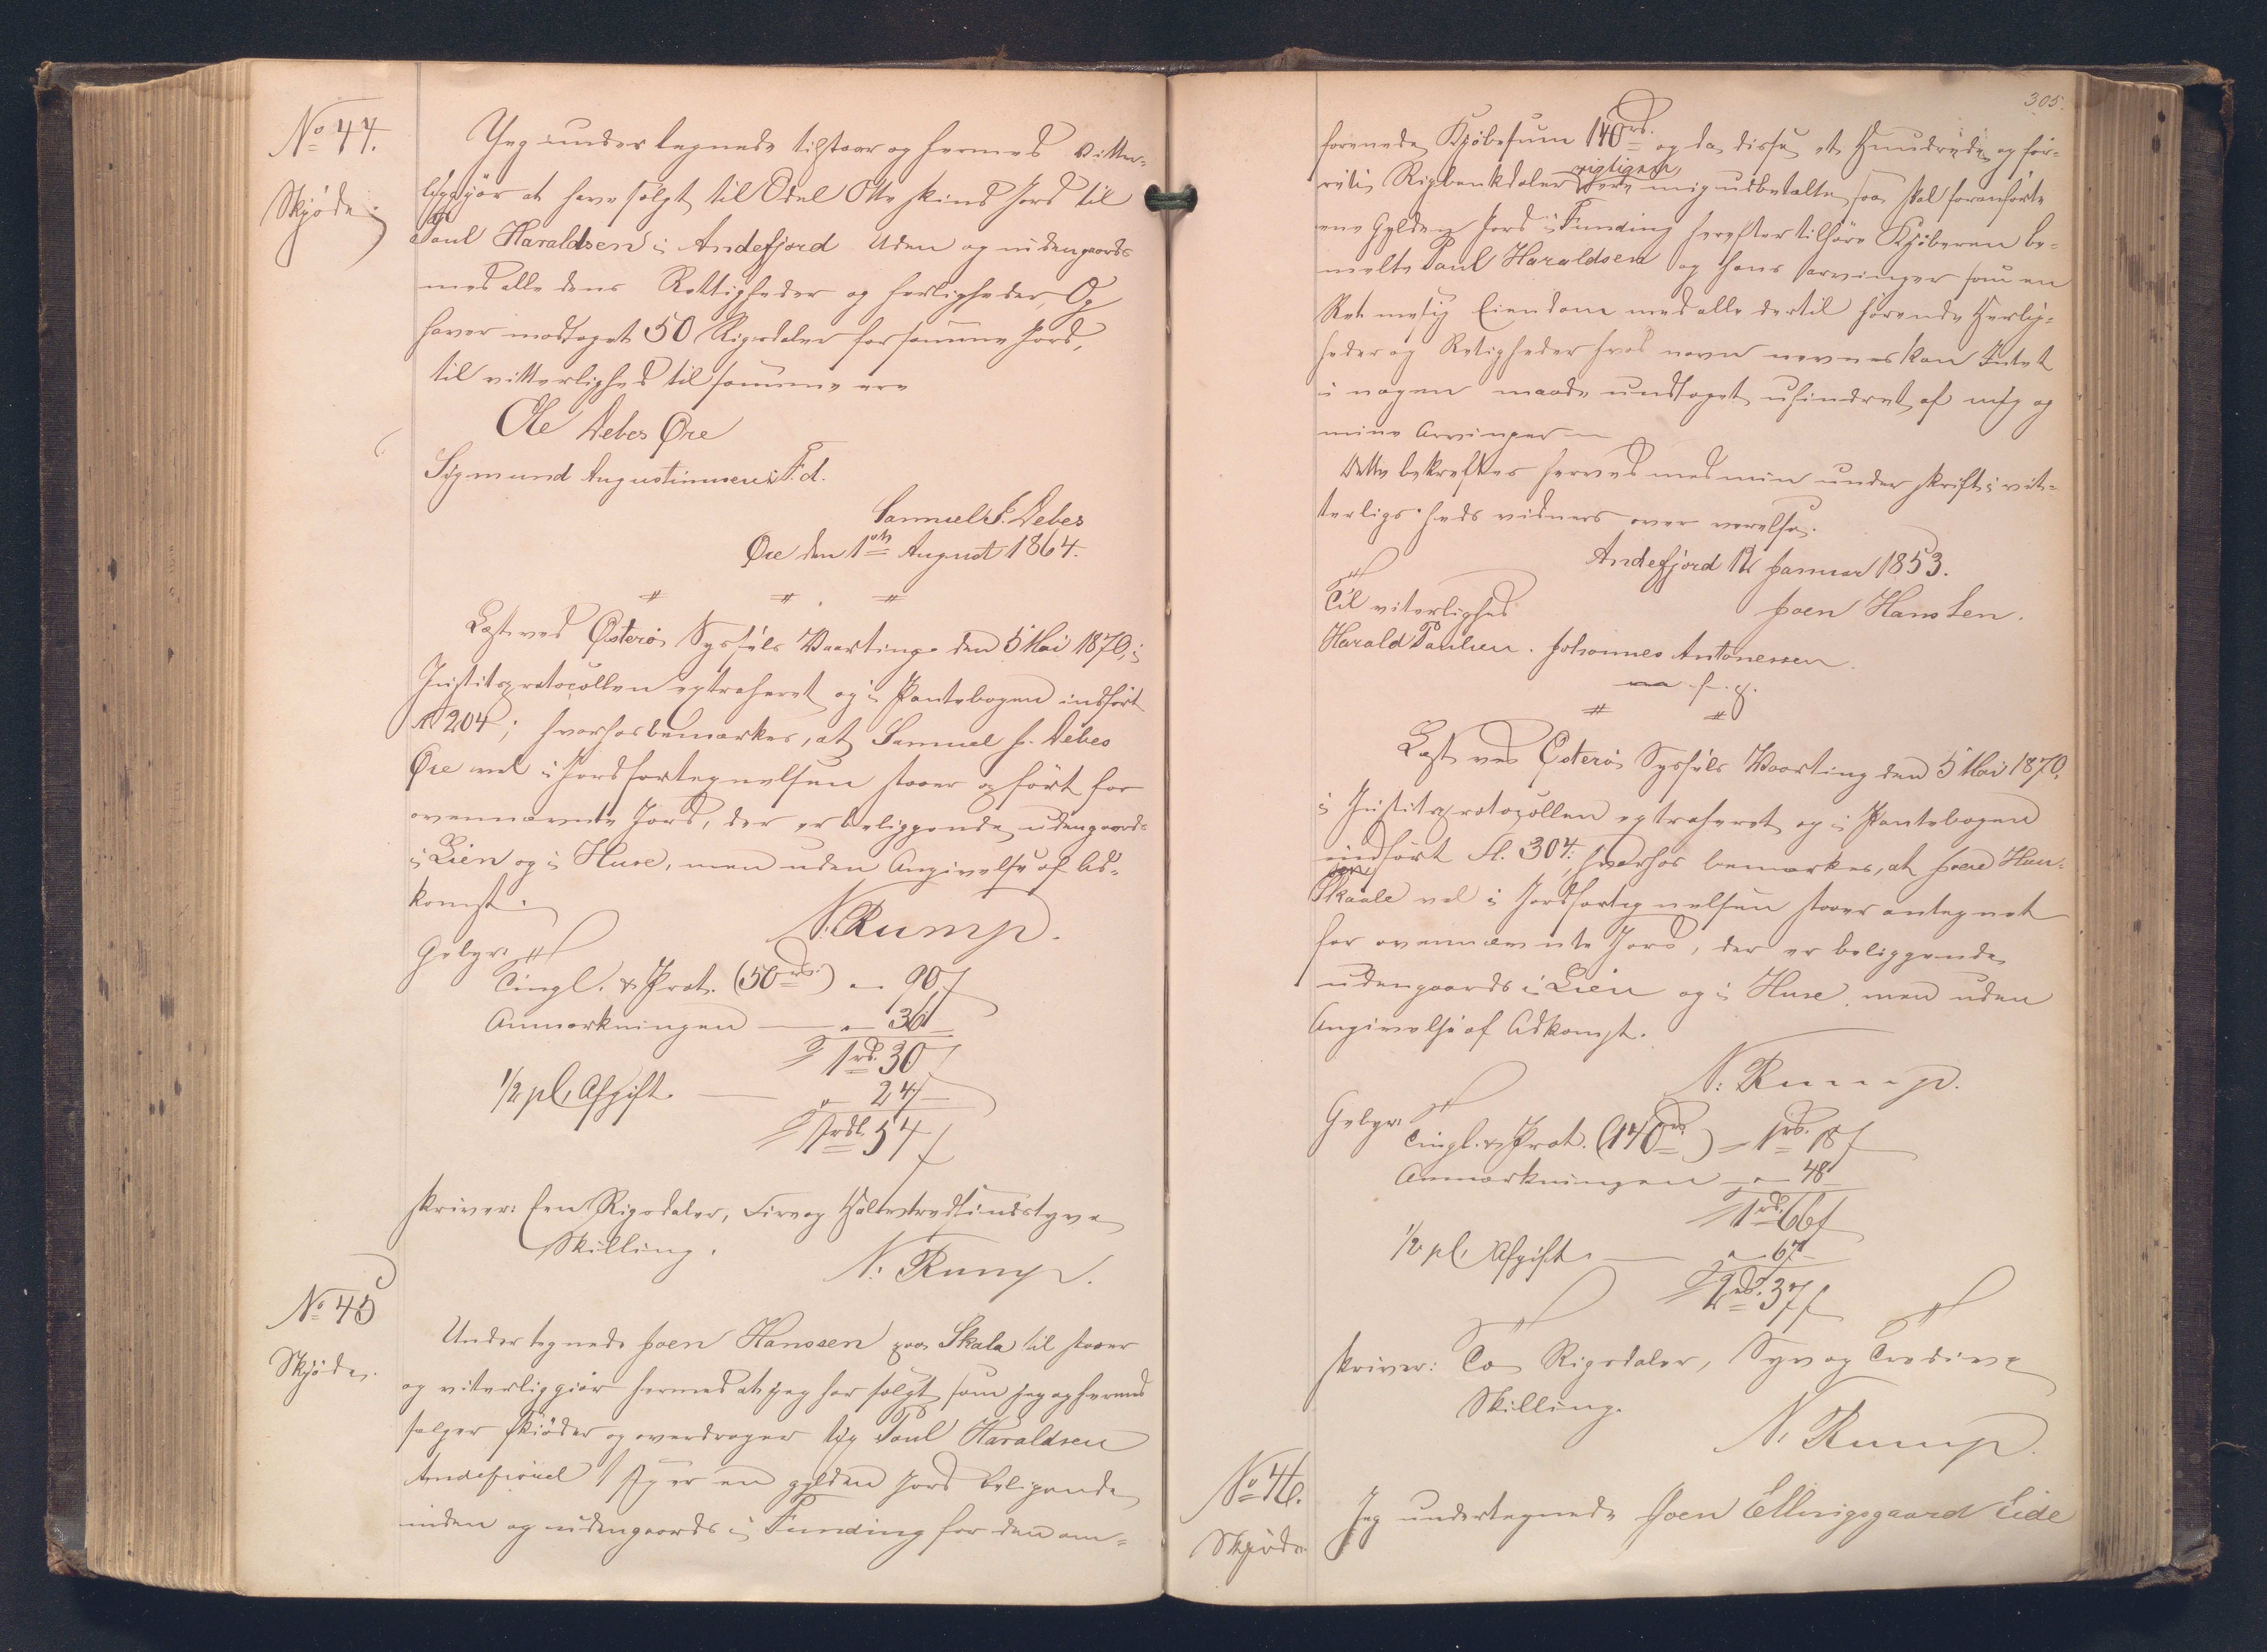 No 44.
Skjøde
Jeg undertegnede tilstaar og hermed Vitter-
ligjør at have solgt til Odel Otte skind Jord til
Poul Haraldsen i Andefjord Uden og indengaards
med alle dens Rettigheder og herligheder, Og
haver modtaget 50 Rigsdaler for samme Jord,
til vitterlighed til samme ere
Ole Debes Øre
Sigmund Augustinusen i F.d.
Samuel J. Debes
Øre den 1ste August 1864.
Læst ved Østerø Syssels Vaarting den 5 Mai 1870, i
Justitsprotocollen extraheret og i Pantebogen indført
fl 204; hvorhos bemærkes, at Samuel J. Debes
Øre vel i Jordfortegnelsen staaer opført for
ovennævnte Jord, der er beliggende udengaards
i Lien og i Huse, men uden Angivelse af Ad-
komst.
N. Rump.
Gebyr:
Tingl. & Prot. (50 rd.) " 90 f
Anmærkningen — " 36
1 rd. 30 f
1/2 pCt. Afgift. — " 24
1 rdl. 54 f
skriver: Een Rigsdaler, Fire og Halvtredsindstyve
Skilling.
N. Rump.
No 45
Skjøde.
Undertegnede Joen Hanssen paa Skala til staaer
og viterliggiør hermed at jeg har solgt som jeg og hermed
sælger skiøder og overdrager til Poul Haraldsen
Andefiord 1 siger en gylden Jord beligende
inden og udengaards i Funding for den om-
305.
forenede Kjøbesum 140 rd. og da disse et Hundrede og før-
retive Rigbankdaler rigtigen ere mig udbetalte saa skal foranførte
ene Gylden Jord i Funding herefter tilhøre Kjøberen be-
melte Poul Haraldsen og hans arvinger som en
Ret mesig Eiendom med alle dertil hørende Herlig-
heder og Retigheder hvad navn nevnes kan Intet
i nogen maade undtaget uhindret af mig og
mine Arvinger
Dette bekreftes herved med min under skrift i vit-
terligs heds vidners over verelse.
Andefjord 12 Januar 1853.
Til viterlighed
Joen Hansen.
Harald Poulsen. Johannes Antonessen.
m. f. P.
Læst ved Østerø Syssels Vaarting den 5 Mai 1870,
i Justitsprotocollen extraheret og i Pantebogen
indført fl. 304; hvorhos bemærkes, at Joen Han-
sen
Skaale vel i Jordfortegnelsen staaer antegnet
for ovennævnte Jord, der er beliggende
udengaards i Lien og i Huse, men uden
Angivelse af Adkomst.
N. Rump.
Gebyr:
Tingl. & Prot. (140 rd.) = 1 rd. 18 f
Anmærkningen — " 48
1 rd. 66 f
1/2 pCt. Afgift. — " 67
2 rd. 37 f
skriver: To Rigsdaler, Syv og Tredive
Skilling.
N. Rump.
No 46.
Skjøde.
Jeg undertegnede Joen Ellingsgaard Eide